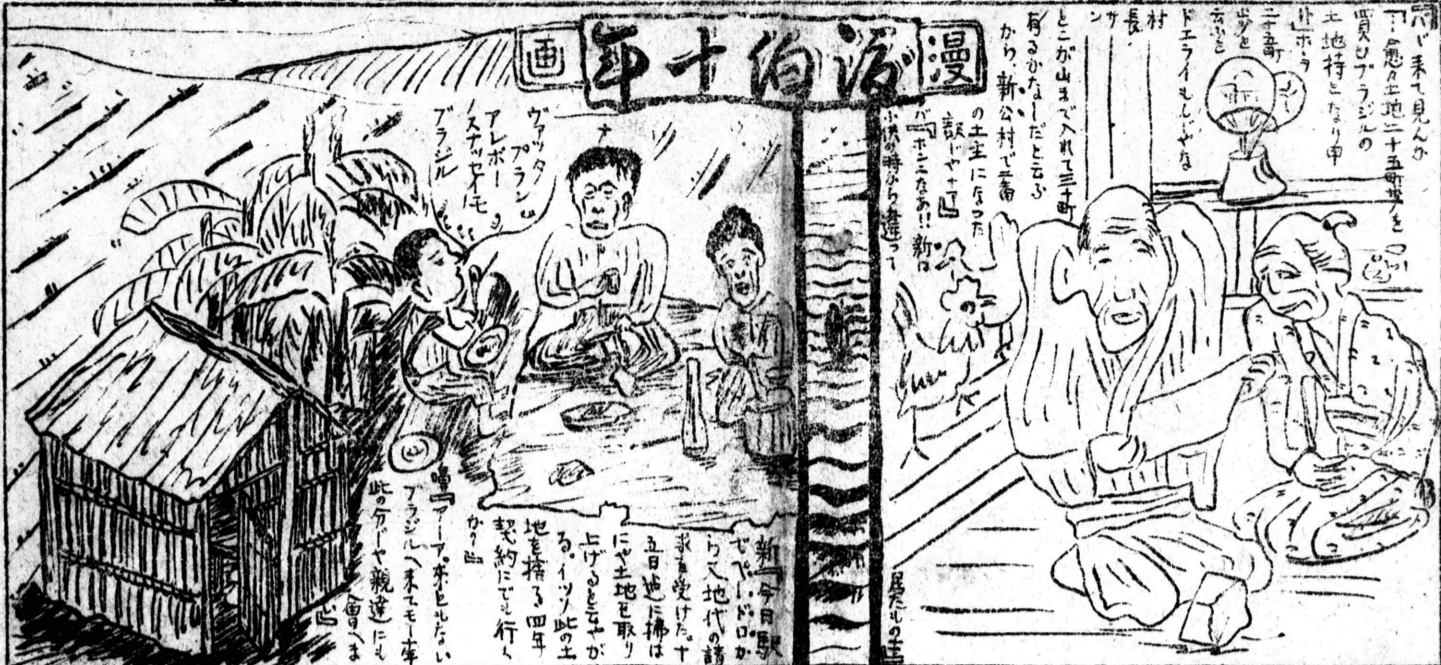 漫画
渡伯十年
来て見んか
『…愈々土地二十五町歩を
買ひブラジルの
土地持となり申
ホラ
二十五町
歩と
云ふと
ドエライもんじやな
村
長
サ
ン
とこが山まで入れて三十町
有るかなしだと云ふ
から、新公村で一番
の土主になつた
訳じや
バ『ホンニなあ!!新は
小供の時から違つて
居たもの
ヴァッタ
プラン
アレボー
ノスナッセイモ
ブラジル
新『今日駅
でペードロか
ら又地代の請
求を受けた。十
五日迄に拂は
にや土地を取り
上げると云やが
る。イッソ此の土
地を捨る四年
契約にでも行く
か?』
『アーア。来ともない
ブラジルへ来てモー
此の分ーや親達にも
會へま
』